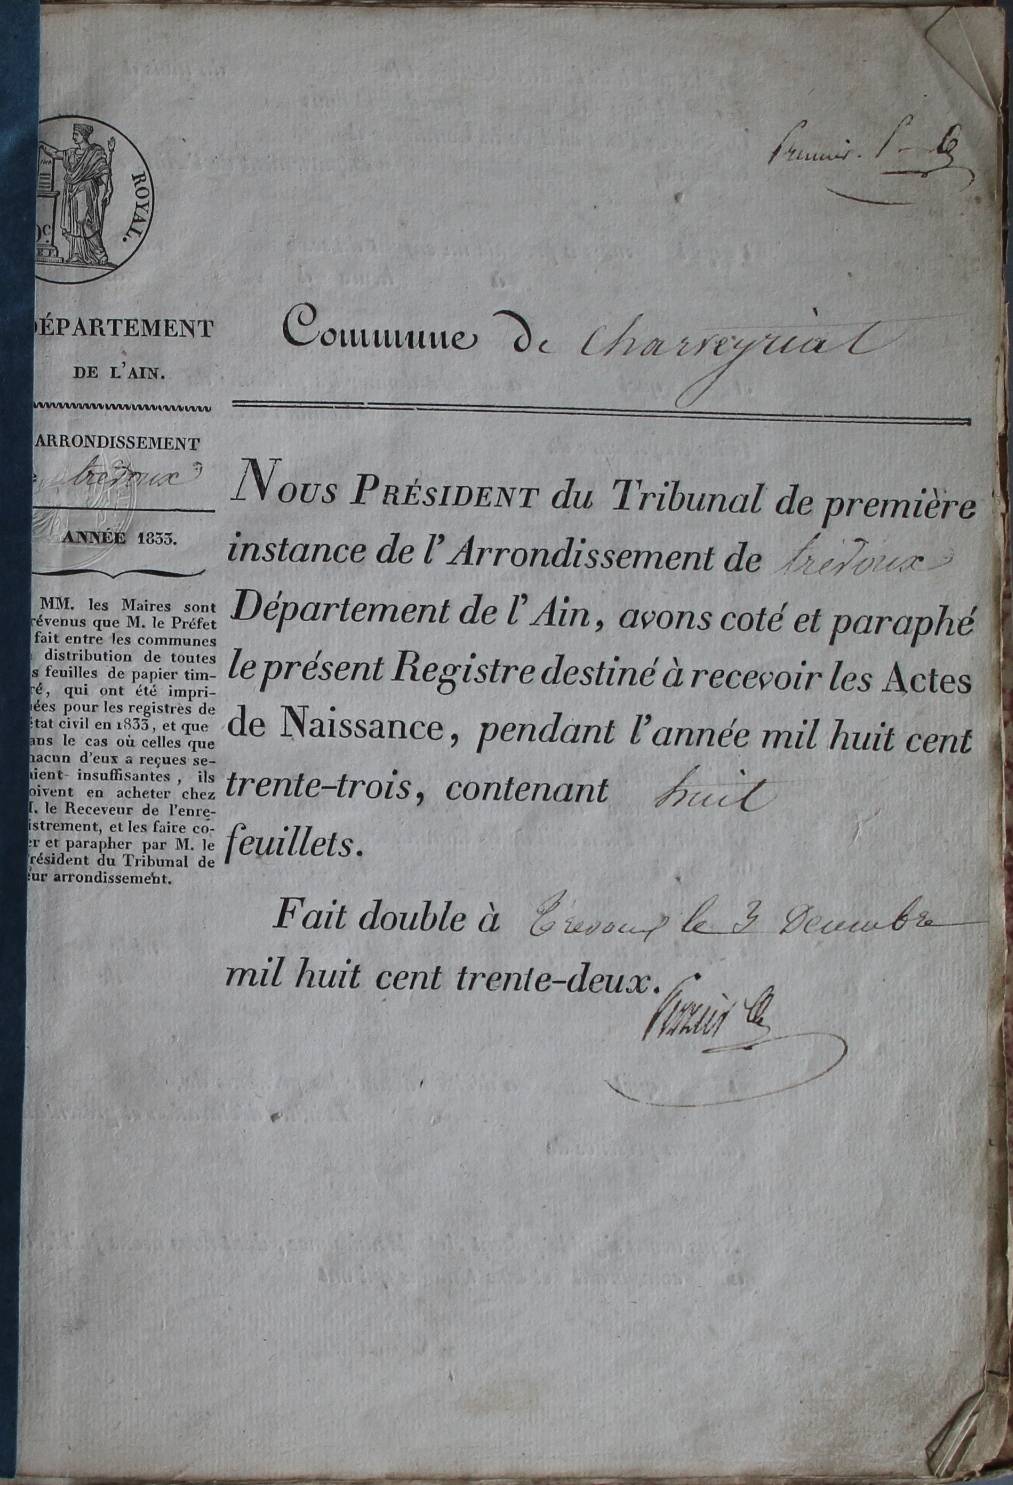 ROYAL.
Premier.
DÉPARTEMENT
DE L'AIN.
ARRONDISSEMENT
trévoux
ANNÉE 1833.
MM. les Maires sont
révenus que M. le Préfet
fait entre les communes
distribution de toutes
s feuilles de papier tim-
ré, qui ont été impri-
ées pour les registres de
état civil en 1833, et que
ans le cas où celles que
hacun d'eux a reçues se-
aient insuffisantes, ils
oivent en acheter chez
M. le Receveur de l'enre-
istrement, et les faire co-
er et parapher par M. le
résident du Tribunal de
eur arrondissement.
Commune de Charveyriat
Nous Président du Tribunal de première
instance de l'Arrondissement de trévoux
Département de l'Ain, avons coté et paraphé
le présent Registre destiné à recevoir les Actes
de Naissance, pendant l'année mil huit cent
trente-trois, contenant huit
feuillets.
Fait double à Trevoux le 3 Decembre
mil huit cent trente-deux.